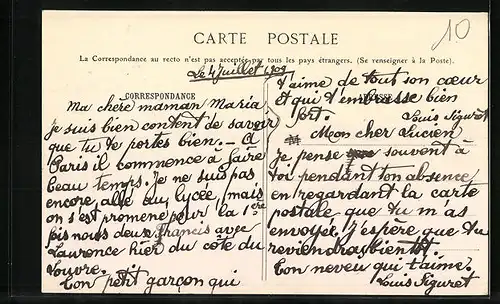 10
CARTE POSTALE
La Correspondance au recto n'est pas acceptée par tous les pays étrangers. (Se renseigner à la Poste).
Le 4 Juillet 1909
CORRESPONDANCE
Ma chère maman Maria
Je suis bien content de savoir
que tu te portes bien. - A
Paris il commence à faire
beau temps. Je ne suis pas
encore allé au lycée, mais
on s'est promené pour la 1ère
fois nous deux francis avec
Laurence hier du côté du
Louvre.
Ton petit garçon qui
t'aime de tout son cœur
et qui t'embrasse bien
fort. Louis Figuret
Mon cher Lucien
Je pense souvent à
toi pendant ton absence
en regardant la carte
postale que tu m'as
envoyée, j'espère que tu
reviendras bientôt.
Ton neveu qui t'aime.
Louis Figuret